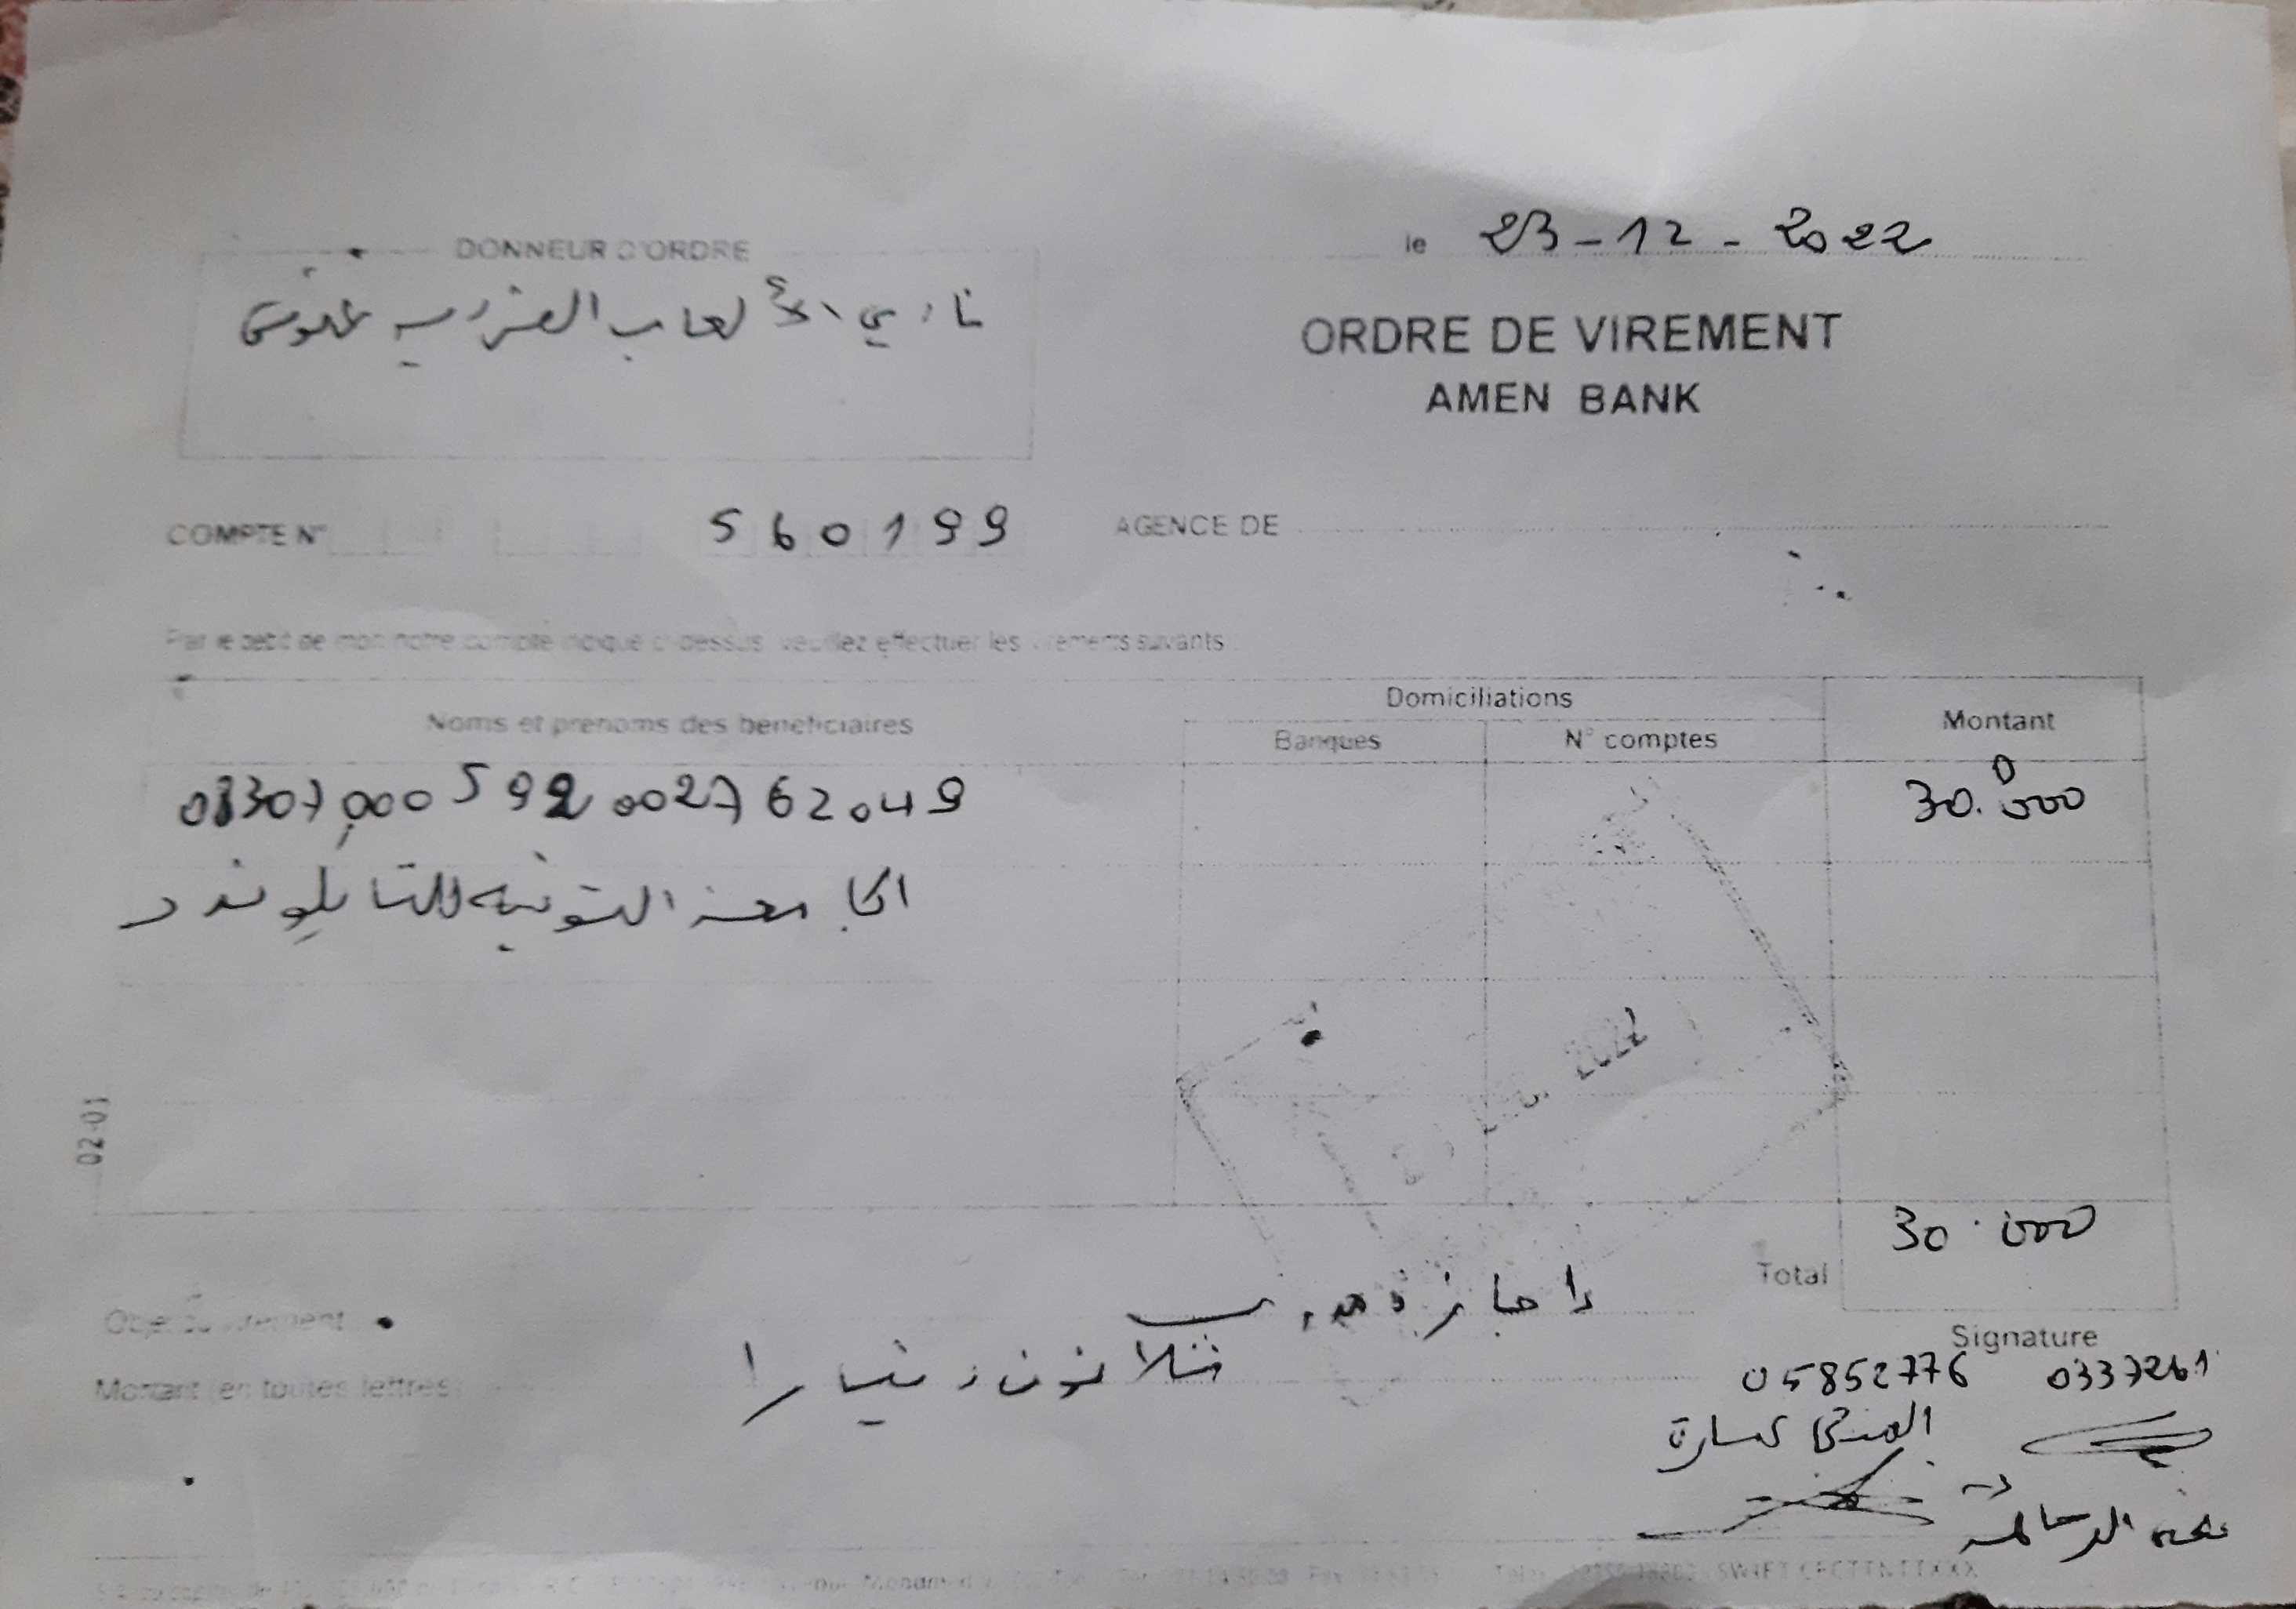 DONNEUR D'ORDRE
نادي الألعاب الفردية
le 23-12-2022
ORDRE DE VIREMENT
AMEN BANK
COMPTE N° 560199
AGENCE DE
Par le débit de mon notre compte indiqué ci-dessus, veuillez effectuer les virements suivants :
Noms et prénoms des bénéficiaires
Domiciliations
Banques
N° comptes
Montant
08307000592002762049
30.000
الجامعة التونسية للتايكوندو
2022
02-01
Total 30.000
Objet du virement
اجازة مدرب
Montant (en toutes lettres)
ثلاثون دينارا
Signature
05852776 0337261
SWIFT CFCTTNTTXXX